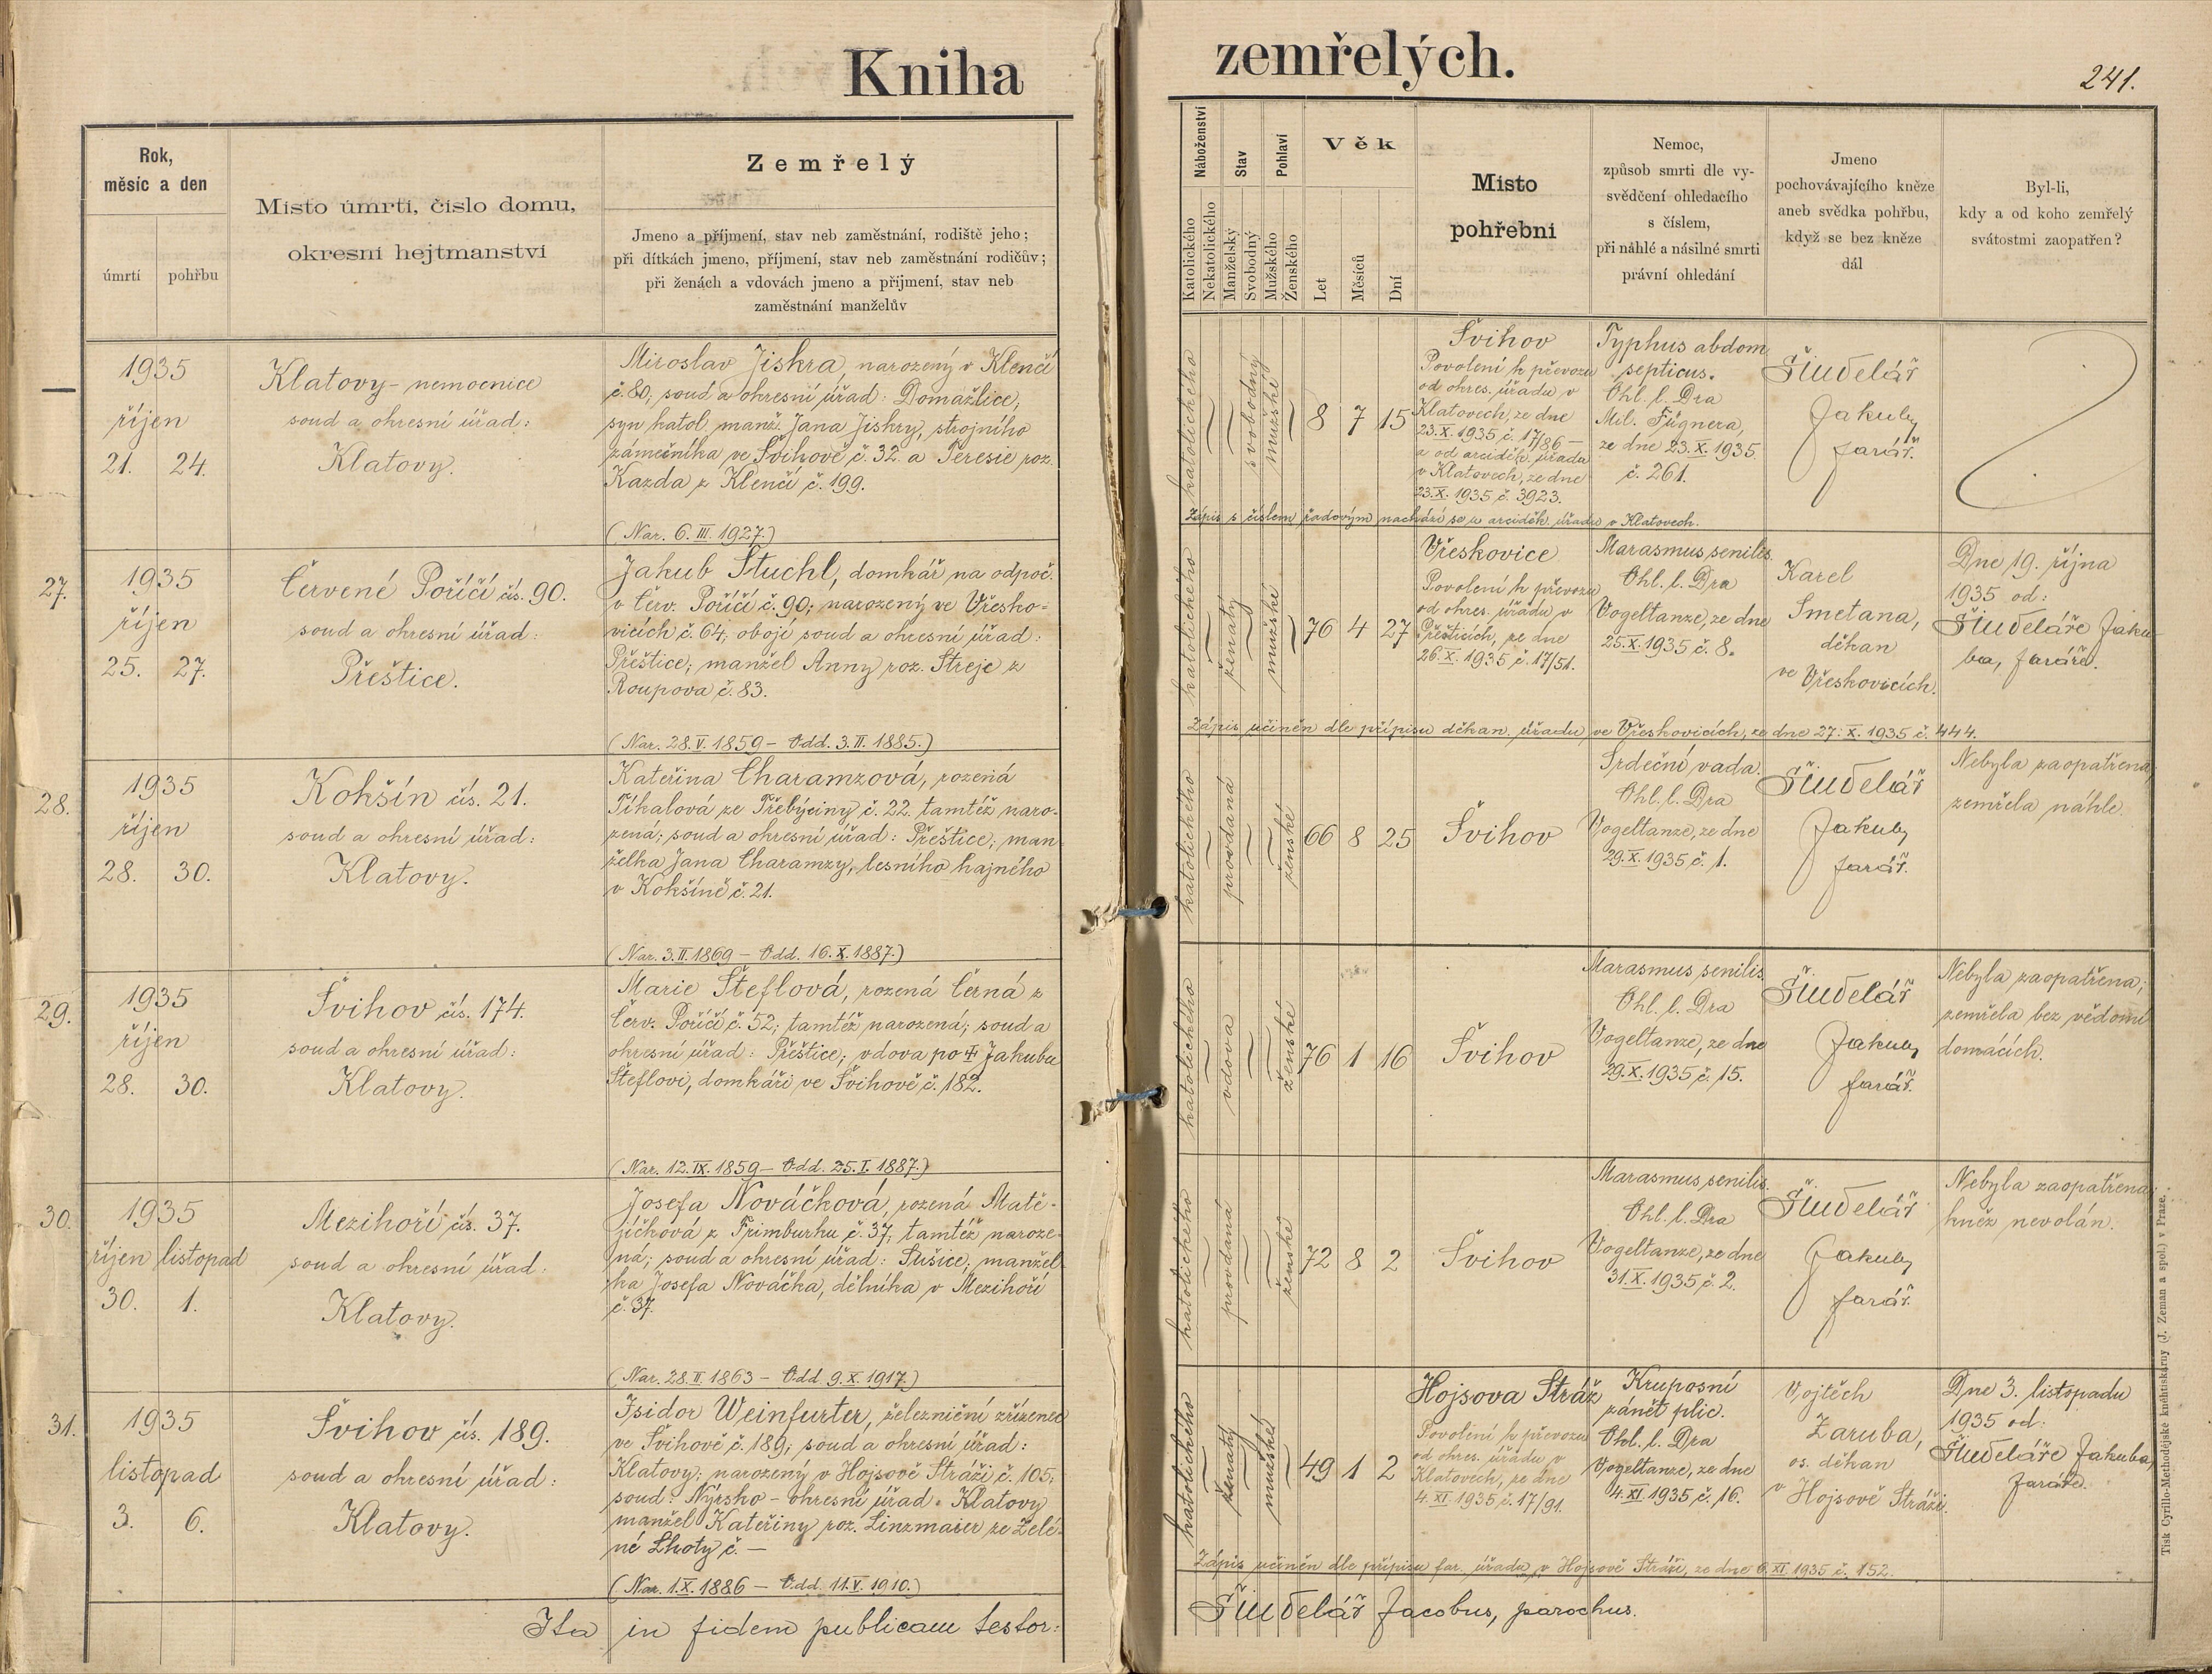 Kniha zemřelých.
241.
Rok,
měsíc a den
úmrtí
pohřbu
Místo úmrtí, číslo domu,
okresní hejtmanství
Zemřelý
Jmeno a příjmení, stav neb zaměstnání, rodiště jeho;
při dítkách jmeno, příjmení, stav neb zaměstnání rodičův;
při ženách a vdovách jmeno a přijmení, stav neb
zaměstnání manželův
Náboženství
Katolického
Nekatolického
Stav
Manželský
Svobodný
Pohlaví
Mužského
Ženského
Věk
Let
Měsíců
Dní
Místo
pohřební
Nemoc,
způsob smrti dle vy-
svědčení ohledacího
s číslem,
při náhlé a násilné smrti
právní ohledání
Jmeno
pochovávajícího kněze
aneb svědka pohřbu,
když se bez kněze
dál
Byl-li,
kdy a od koho zemřelý
svátostmi zaopatřen?
—
1935
říjen
21. 24.
Klatovy - nemocnice
soud a okresní úřad:
Klatovy.
Miroslav Jiskra, narozený v Klenčí
č. 80; soud a okresní úřad: Domažlice;
syn katol. manž. Jana Jiskry, strojního
zámečníka ve Švihově č. 32. a Teresie roz.
Kazda z Klenčí č. 199.
(Nar. 6. III. 1927.)
katolického
svobodný
mužské
8 7 15
Švihov
Povolení k převozu
od okres. úřadu v
Klatovech, ze dne
23. X. 1935 č. 17/86 –
a od arciděk. úřadu
v Klatovech, ze dne
23. X. 1935 č. 3923.
Typhus abdom.
septicus.
Ohl. l. Dra
Mil. Fügnera,
ze dne 23. X. 1935.
č. 261.
Študelář
Jakub,
farář.
Zápis s číslem řadovým nachází se u arciděk. úřadu v Klatovech.
27.
1935
říjen
25. 27.
Červené Poříčí čís. 90.
soud a okresní úřad:
Přeštice.
Jakub Stuchl, domkář na odpoč.
v Červ. Poříčí č. 90; narozený ve Vřesko-
vicích č. 64, obojí soud a okresní úřad:
Přeštice; manžel Anny roz. Strejc z
Roupova č. 83.
(Nar. 28. V. 1859 – Odd. 3. II. 1885.)
katolického
ženatý
mužské
76 4 27
Vřeskovice
Povolení k převozu
od okres. úřadu v
Přešticích, ze dne
26. X. 1935 č. 17/51.
Marasmus senilis.
Ohl. l. Dra
Vogeltanze, ze dne
25. X. 1935 č. 8.
Karel
Smetana,
děkan
ve Vřeskovicích.
Dne 19. října
1935 od:
Študeláře Jaku-
ba, faráře.
Zápis učiněn dle přípisu děkan. úřadu ve Vřeskovicích, ze dne 27. X. 1935 č. 444.
28.
1935
říjen
28. 30.
Kokšín čís. 21.
soud a okresní úřad:
Klatovy.
Kateřina Charamzová, rozená
Tíkalová ze Třebýciny č. 22. tamtéž naro-
zená; soud a okresní úřad: Přeštice; man-
želka Jana Charamzy, lesního hajného
v Kokšíně č. 21.
(Nar. 3. II. 1869 – Odd. 16. X. 1887.)
katolického
provdaná
ženské
66 8 25
Švihov
Srdeční vada.
Ohl. l. Dra
Vogeltanze, ze dne
29. X. 1935 č. 1.
Študelář
Jakub,
farář.
Nebyla zaopatřena;
zemřela náhle.
29.
1935
říjen
28. 30.
Švihov čís. 174.
soud a okresní úřad:
Klatovy.
Marie Šteflová, rozená Černá z
Červ. Poříčí č. 52; tamtéž narozená; soud a
okresní úřad: Přeštice; vdova po † Jakubu
Šteflovi, domkáři ve Švihově č. 182.
(Nar. 12. IX. 1859 – Odd. 25. I. 1887.)
katolického
vdova
ženské
76 1 16
Švihov
Marasmus senilis.
Ohl. l. Dra
Vogeltanze, ze dne
29. X. 1935 č. 15.
Študelář
Jakub,
farář.
Nebyla zaopatřena;
zemřela bez vědomí
domácích.
30.
1935
říjen listopad
30. 1.
Mezihoří čís. 37.
soud a okresní úřad:
Klatovy.
Josefa Nováčková, rozená Matě-
jíčková z Frimburku č. 37; tamtéž naroze-
ná; soud a okresní úřad: Sušice; manžel-
ka Josefa Nováčka, dělníka v Mezihoří
č. 37.
(Nar. 28. II. 1863 – Odd. 9. X. 1917.)
katolického
provdaná
ženské
72 8 2
Švihov
Marasmus senilis.
Ohl. l. Dra
Vogeltanze, ze dne
31. X. 1935 č. 2.
Študelář
Jakub,
farář.
Nebyla zaopatřena;
kněz nevolán.
31.
1935
listopad
3. 6.
Švihov čís. 189.
soud a okresní úřad:
Klatovy.
Isidor Weinfurter, železniční zřízenec
ve Švihově č. 189; soud a okresní úřad:
Klatovy; narozený v Hojsově Stráži č. 105;
soud: Nýrsko – okresní úřad: Klatovy
manžel Kateřiny roz. Linzmaier ze Zele-
né Lhoty č. –
(Nar. 1. X. 1886 – Odd. 11. V. 1910.)
katolického
ženatý
mužské
49 1 2
Hojsova Stráž
Povolení k převozu
od okres. úřadu v
Klatovech, ze dne
4. XI. 1935 č. 17/91.
Kruposní
zánět plic.
Ohl. l. Dra
Vogeltanze, ze dne
4. XI. 1935 č. 16.
Vojtěch
Zaruba,
os. děkan
v Hojsově Stráži.
Dne 3. listopadu
1935 od:
Študeláře Jakuba,
faráře.
Zápis učiněn dle přípisu far. úřadu v Hojsově Stráži, ze dne 6. XI. 1935 č. 152.
Ita in fidem publicam testor:
Študelář Jacobus, parochus.
Tisk Cyrillo-Methodějské knihtiskárny (J. Zeman a spol.) v Praze.